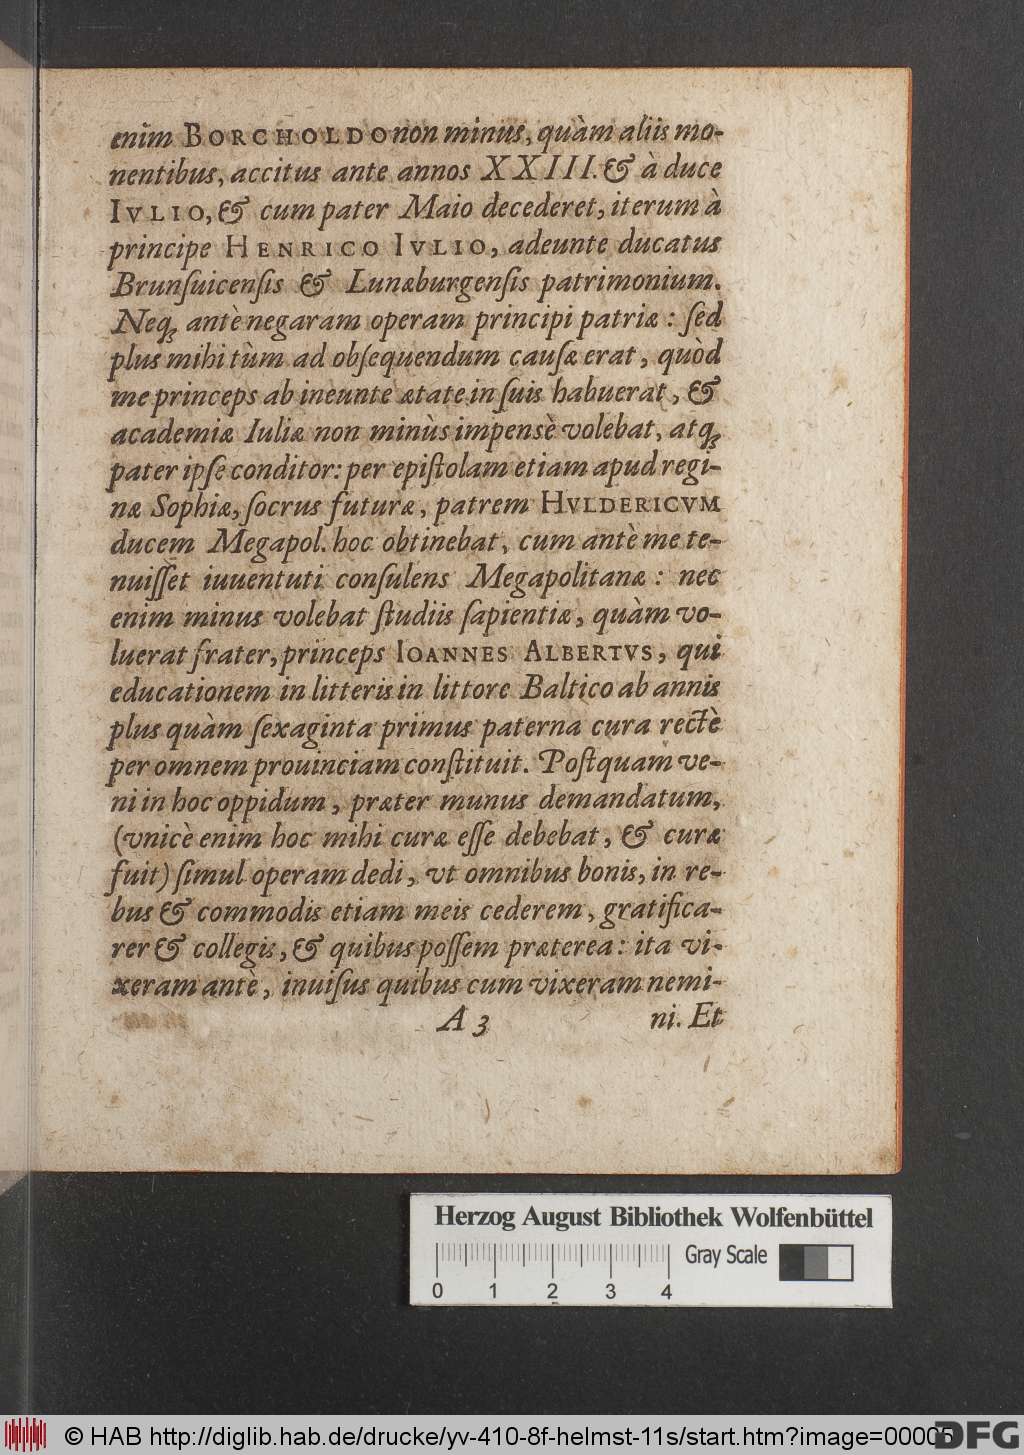 enim BORCHOLDO non minus, quàm aliis mo-
nentibus, accitus ante annos XXIII. & à duce
IVLIO, & cum pater Maio decederet, iterum à
principe HENRICO IVLIO, adeunte ducatus
Brunſuicenſis & Lunæburgenſis patrimonium.
Neq; antè negaram operam principi patriæ : ſed
plus mihi tùm ad obſequendum cauſæ erat, quòd
me princeps ab ineunte ætate in ſuis habuerat, &
academiæ Iuliæ non minùs impensè volebat, atq;
pater ipſe conditor: per epiſtolam etiam apud regi-
næ Sophiæ, ſocrus futuræ, patrem HVLDERICVM
ducem Megapol. hoc obtinebat, cum antè me te-
nuiſſet iuuentuti conſulens Megapolitanæ : nec
enim minus volebat ſtudiis ſapientiæ, quàm vo-
luerat frater, princeps IOANNES ALBERTVS, qui
educationem in litteris in littore Baltico ab annis
plus quàm ſexaginta primus paterna cura rectè
per omnem prouinciam conſtituit. Poſtquam ve-
ni in hoc oppidum, præter munus demandatum,
(vnicè enim hoc mihi curæ eſſe debebat, & curæ
fuit) ſimul operam dedi, vt omnibus bonis, in re-
bus & commodis etiam meis cederem, gratifica-
rer & collegis, & quibus poſſem præterea: ita vi-
xeram antè, inuiſus quibus cum vixeram nemi-
A 3 ni. Et
Herzog August Bibliothek Wolfenbüttel
Gray Scale
0 1 2 3 4
© HAB http://diglib.hab.de/drucke/yv-410-8f-helmst-11s/start.htm?image=00005
DFG